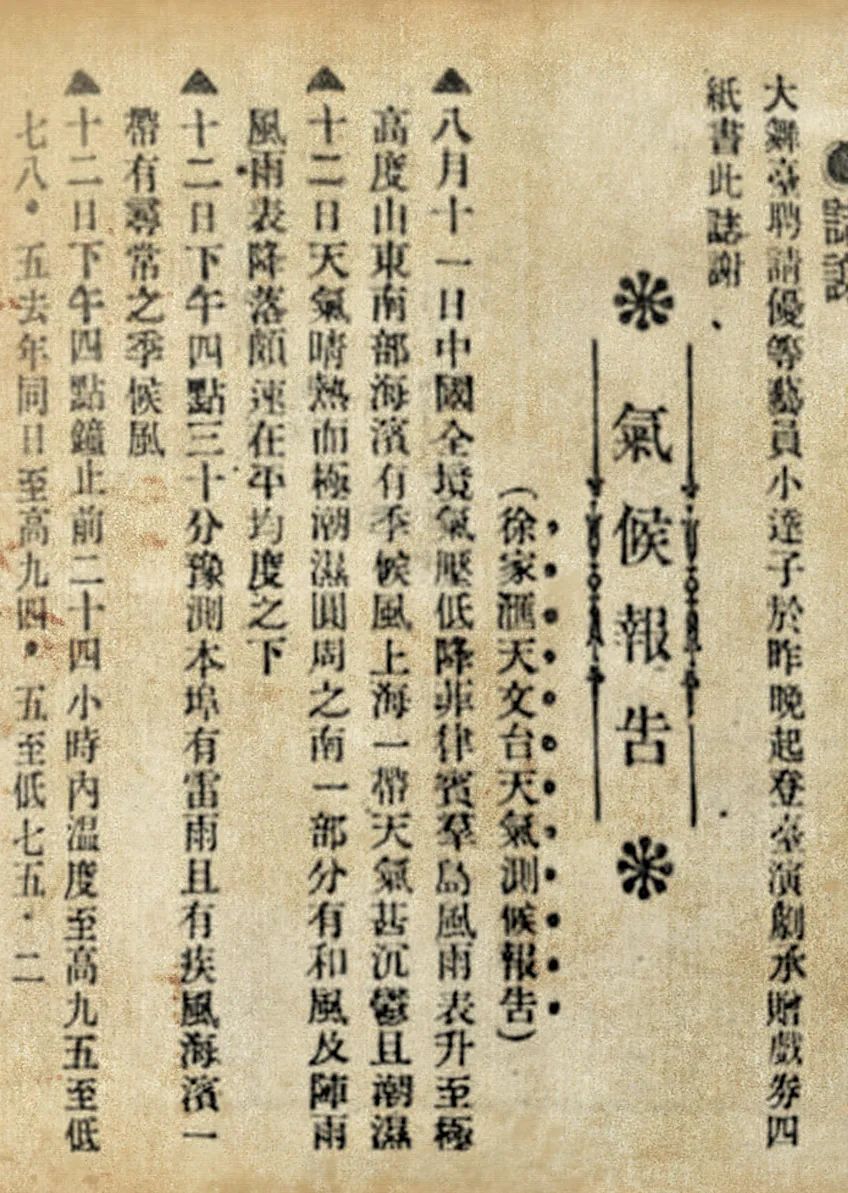 大舞臺聘請優等藝員小達子於昨晚起登臺演劇承贈戲劵四
紙書此誌謝
氣候報告
(徐家滙天文台天氣測候報告)
▲八月十一日中國全境氣壓低降菲律賓羣島風雨表升至極
高度山東南部海濱有季候風上海一帶天氣甚沉鬱且潮濕
▲十二日天氣晴熱而極潮濕圓周之南一部分有和風及陣雨
風雨表降落頗速在平均度之下
▲十二日下午四點三十分豫測本埠有雷雨且有疾風海濱一
帶有尋常之季候風
▲十二日下午四點鐘止前二十四小時內溫度至高九五至低
七八•五去年同日至高九四•五至低七五•二